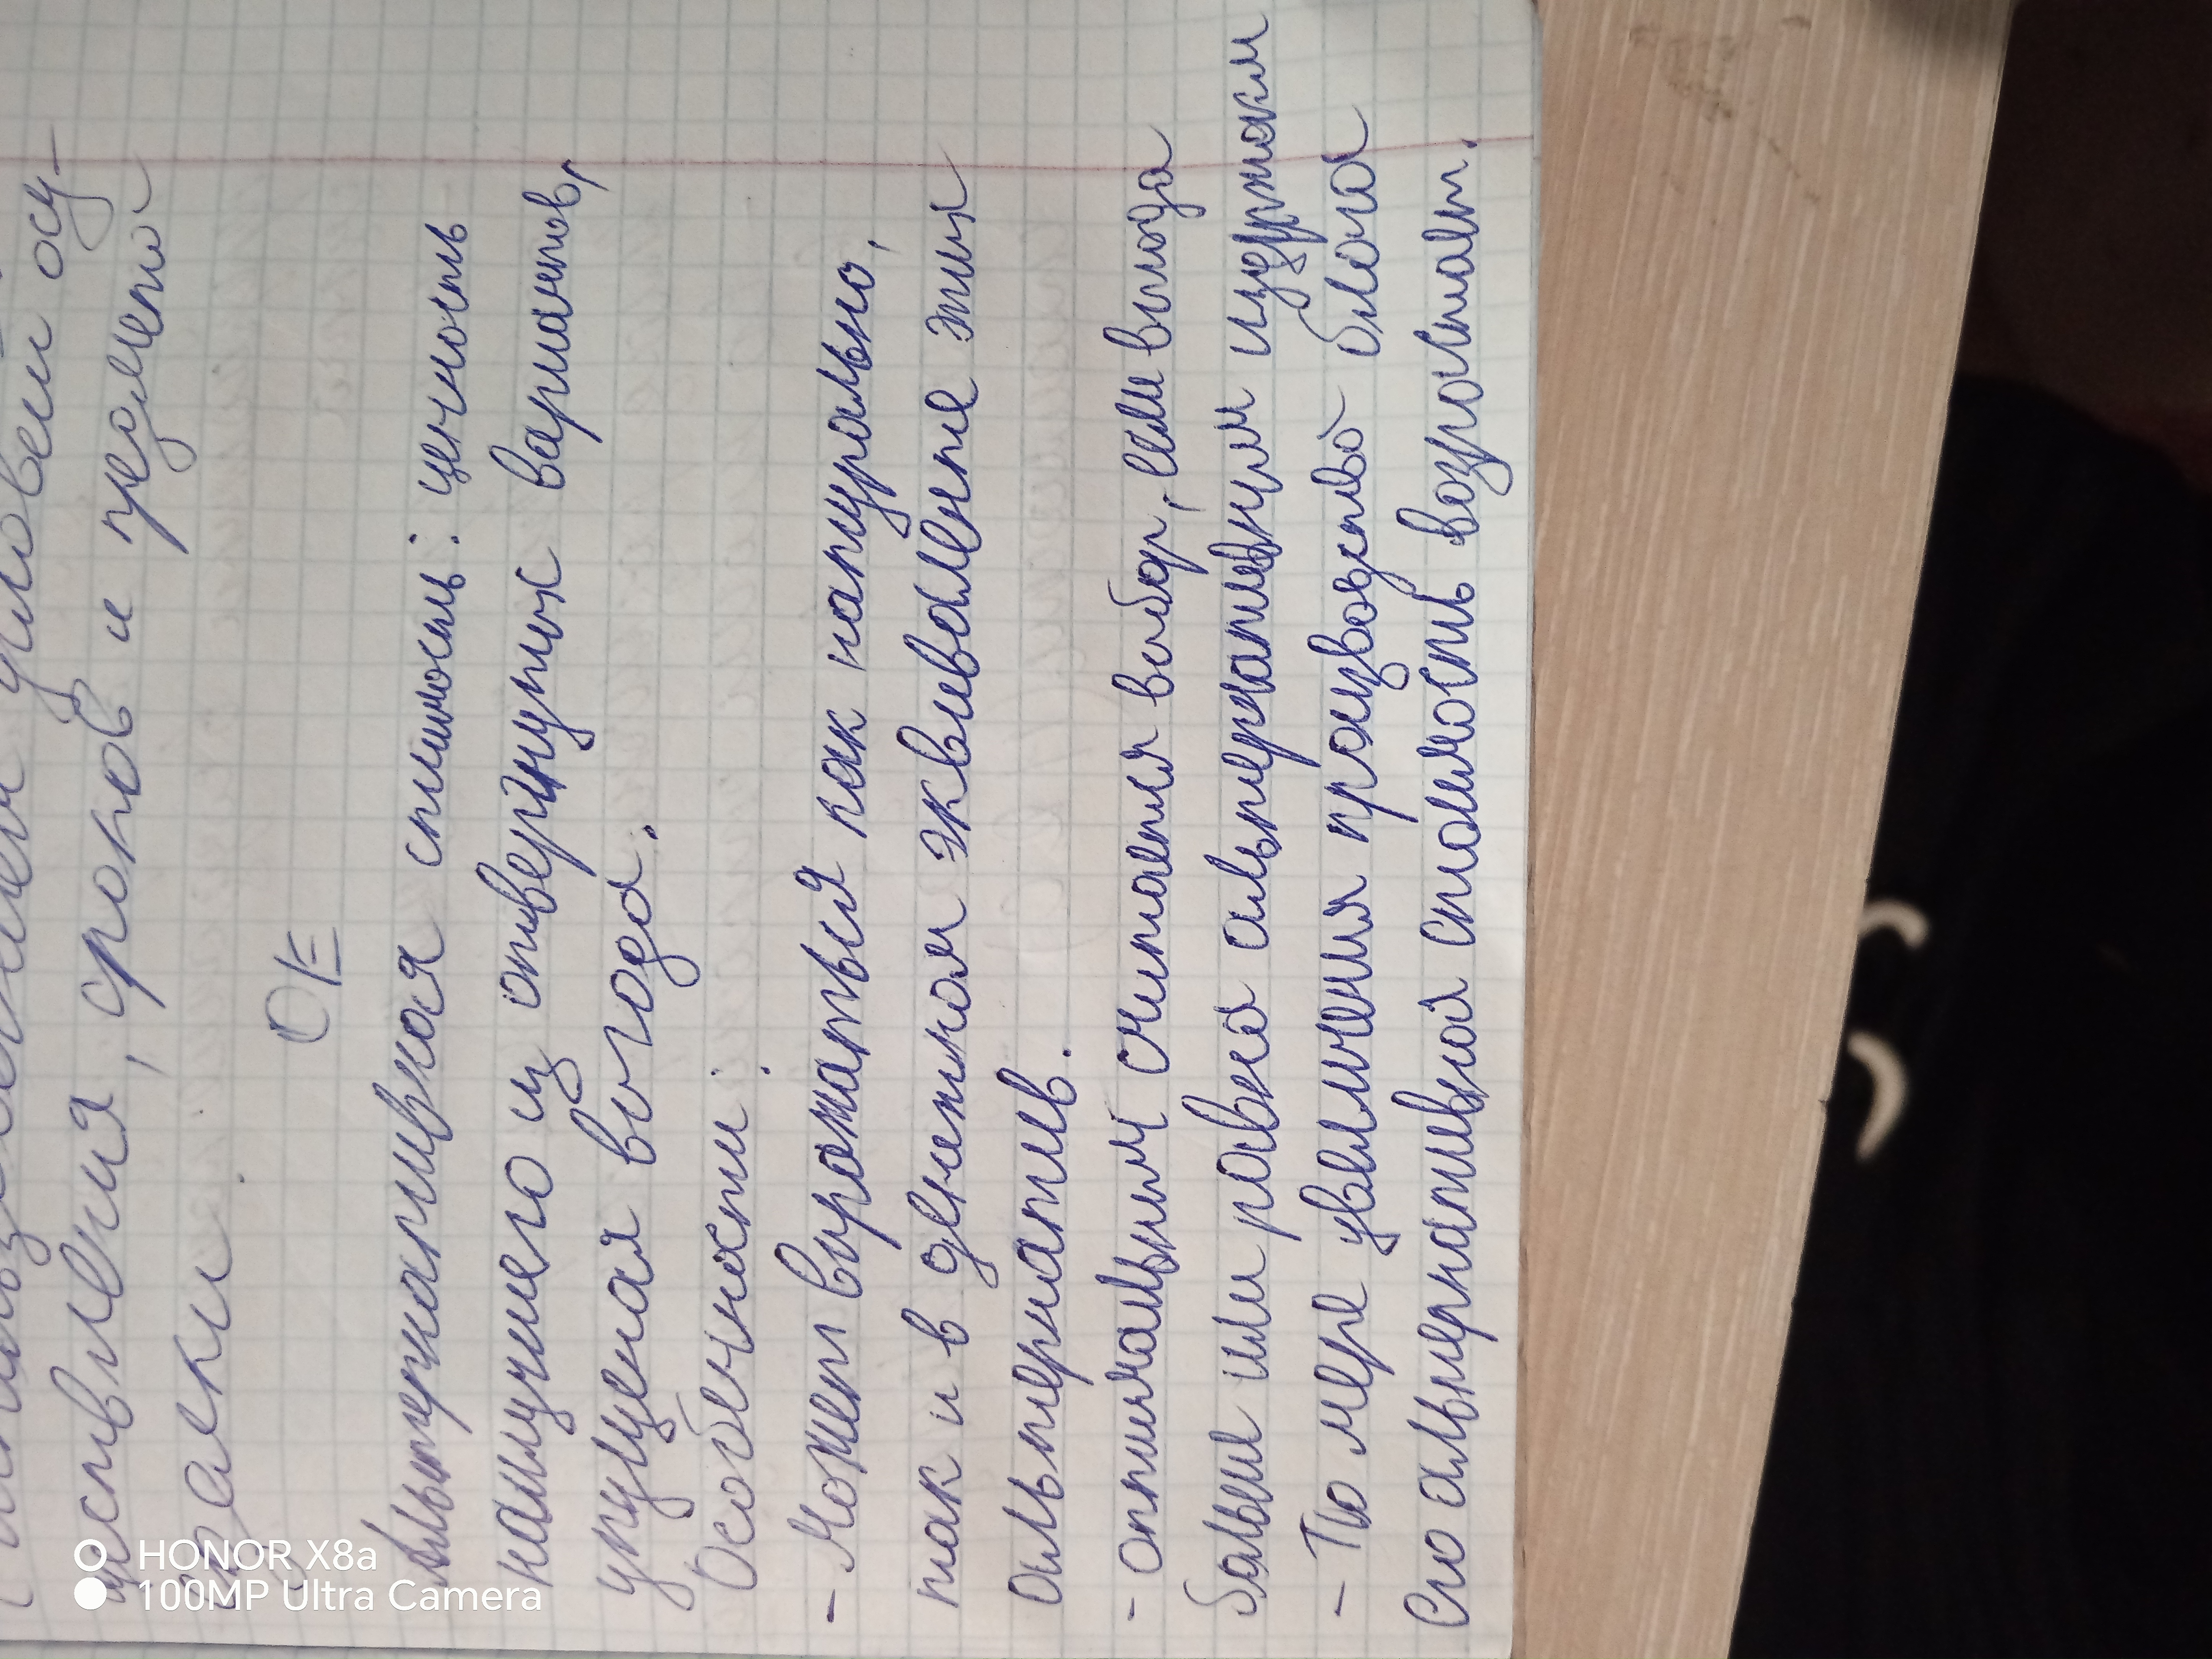 условий осу-
ществления, сроков и предмета
сделки.
ОЕ
Альтернативная стоимость: ценность
наилучшего из отвергнутых вариантов,
упущеная выгода.
Особенности:
- Может выражаться как натурально,
так и в денежном эквиваленте этих
альтернатив.
- оптимальным считается выбор, если выгода
больше или равна альтернативным издержкам
- По мере увеличения производство блага
его альтернативная стоимость возрастает.
HONOR X8a
100MP Ultra Camera